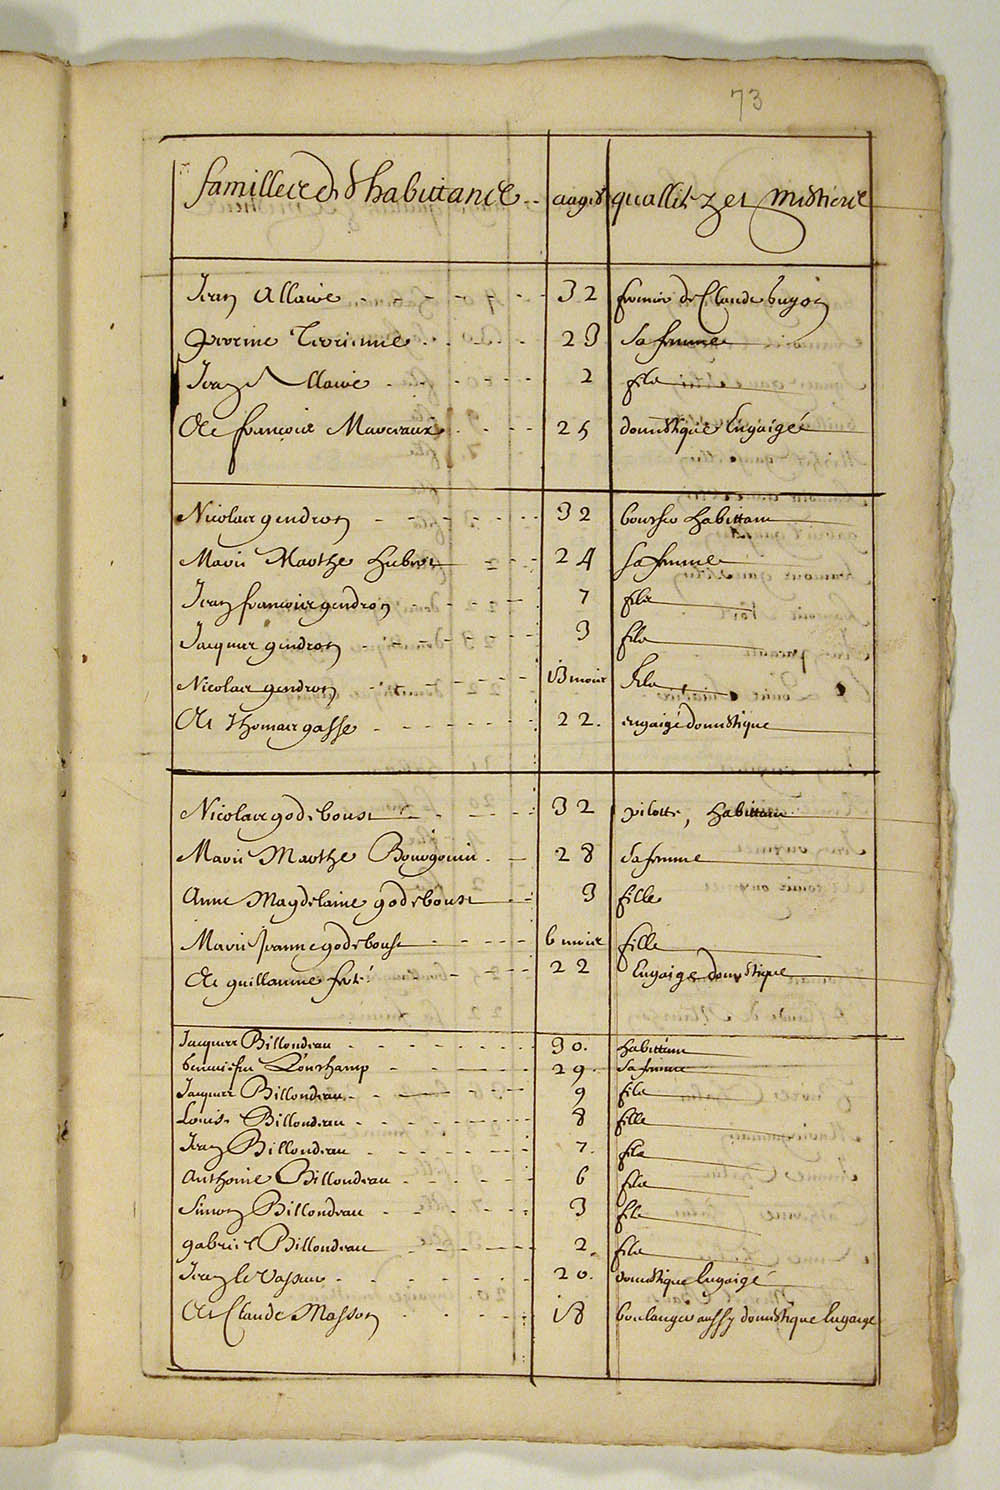 73
familleles d habitans aages quallitez et mestiers
Jean Allaire 32 fermier de Claude Guyon
Perrine Terrienne 23 Sa femme
Jean Allaire 2 filz
Et françois Marceaux 25 domestique Engaigé
Nicolas gendron 32 boucher habittant
Marie Marthe hubert 24 Sa femme
Jean francois gendron 7 filz
Jacques gendron 3 filz
Nicolas gendron 18 mois filz
Et Thomas gasse 22. engaigé domestique
Nicolas godebout 32 pilotte, habittant
Marie Marthe Bourgouin 28 Sa femme
Anne Magdelaine godebout 3 fille
Marie Jeanne godebout 6 mois fille
Et guillaume forté 22 Engaigé domestique
Jacques Billondeau 30. habittant
Geneviefve Lonchamp 29. Sa femme
Jacques Billondeau 9 filz
Louise Billondeau 8 fille
Jean Billondeau 7. filz
Anthoine Billondeau 6 filz
Simon Billondeau 3 filz
gabriel Billondeau 2. filz
Jean le Vasseur 20. domestique Engaigé
Et Claude Masson 18 boulanger aussy domestique Engaigé